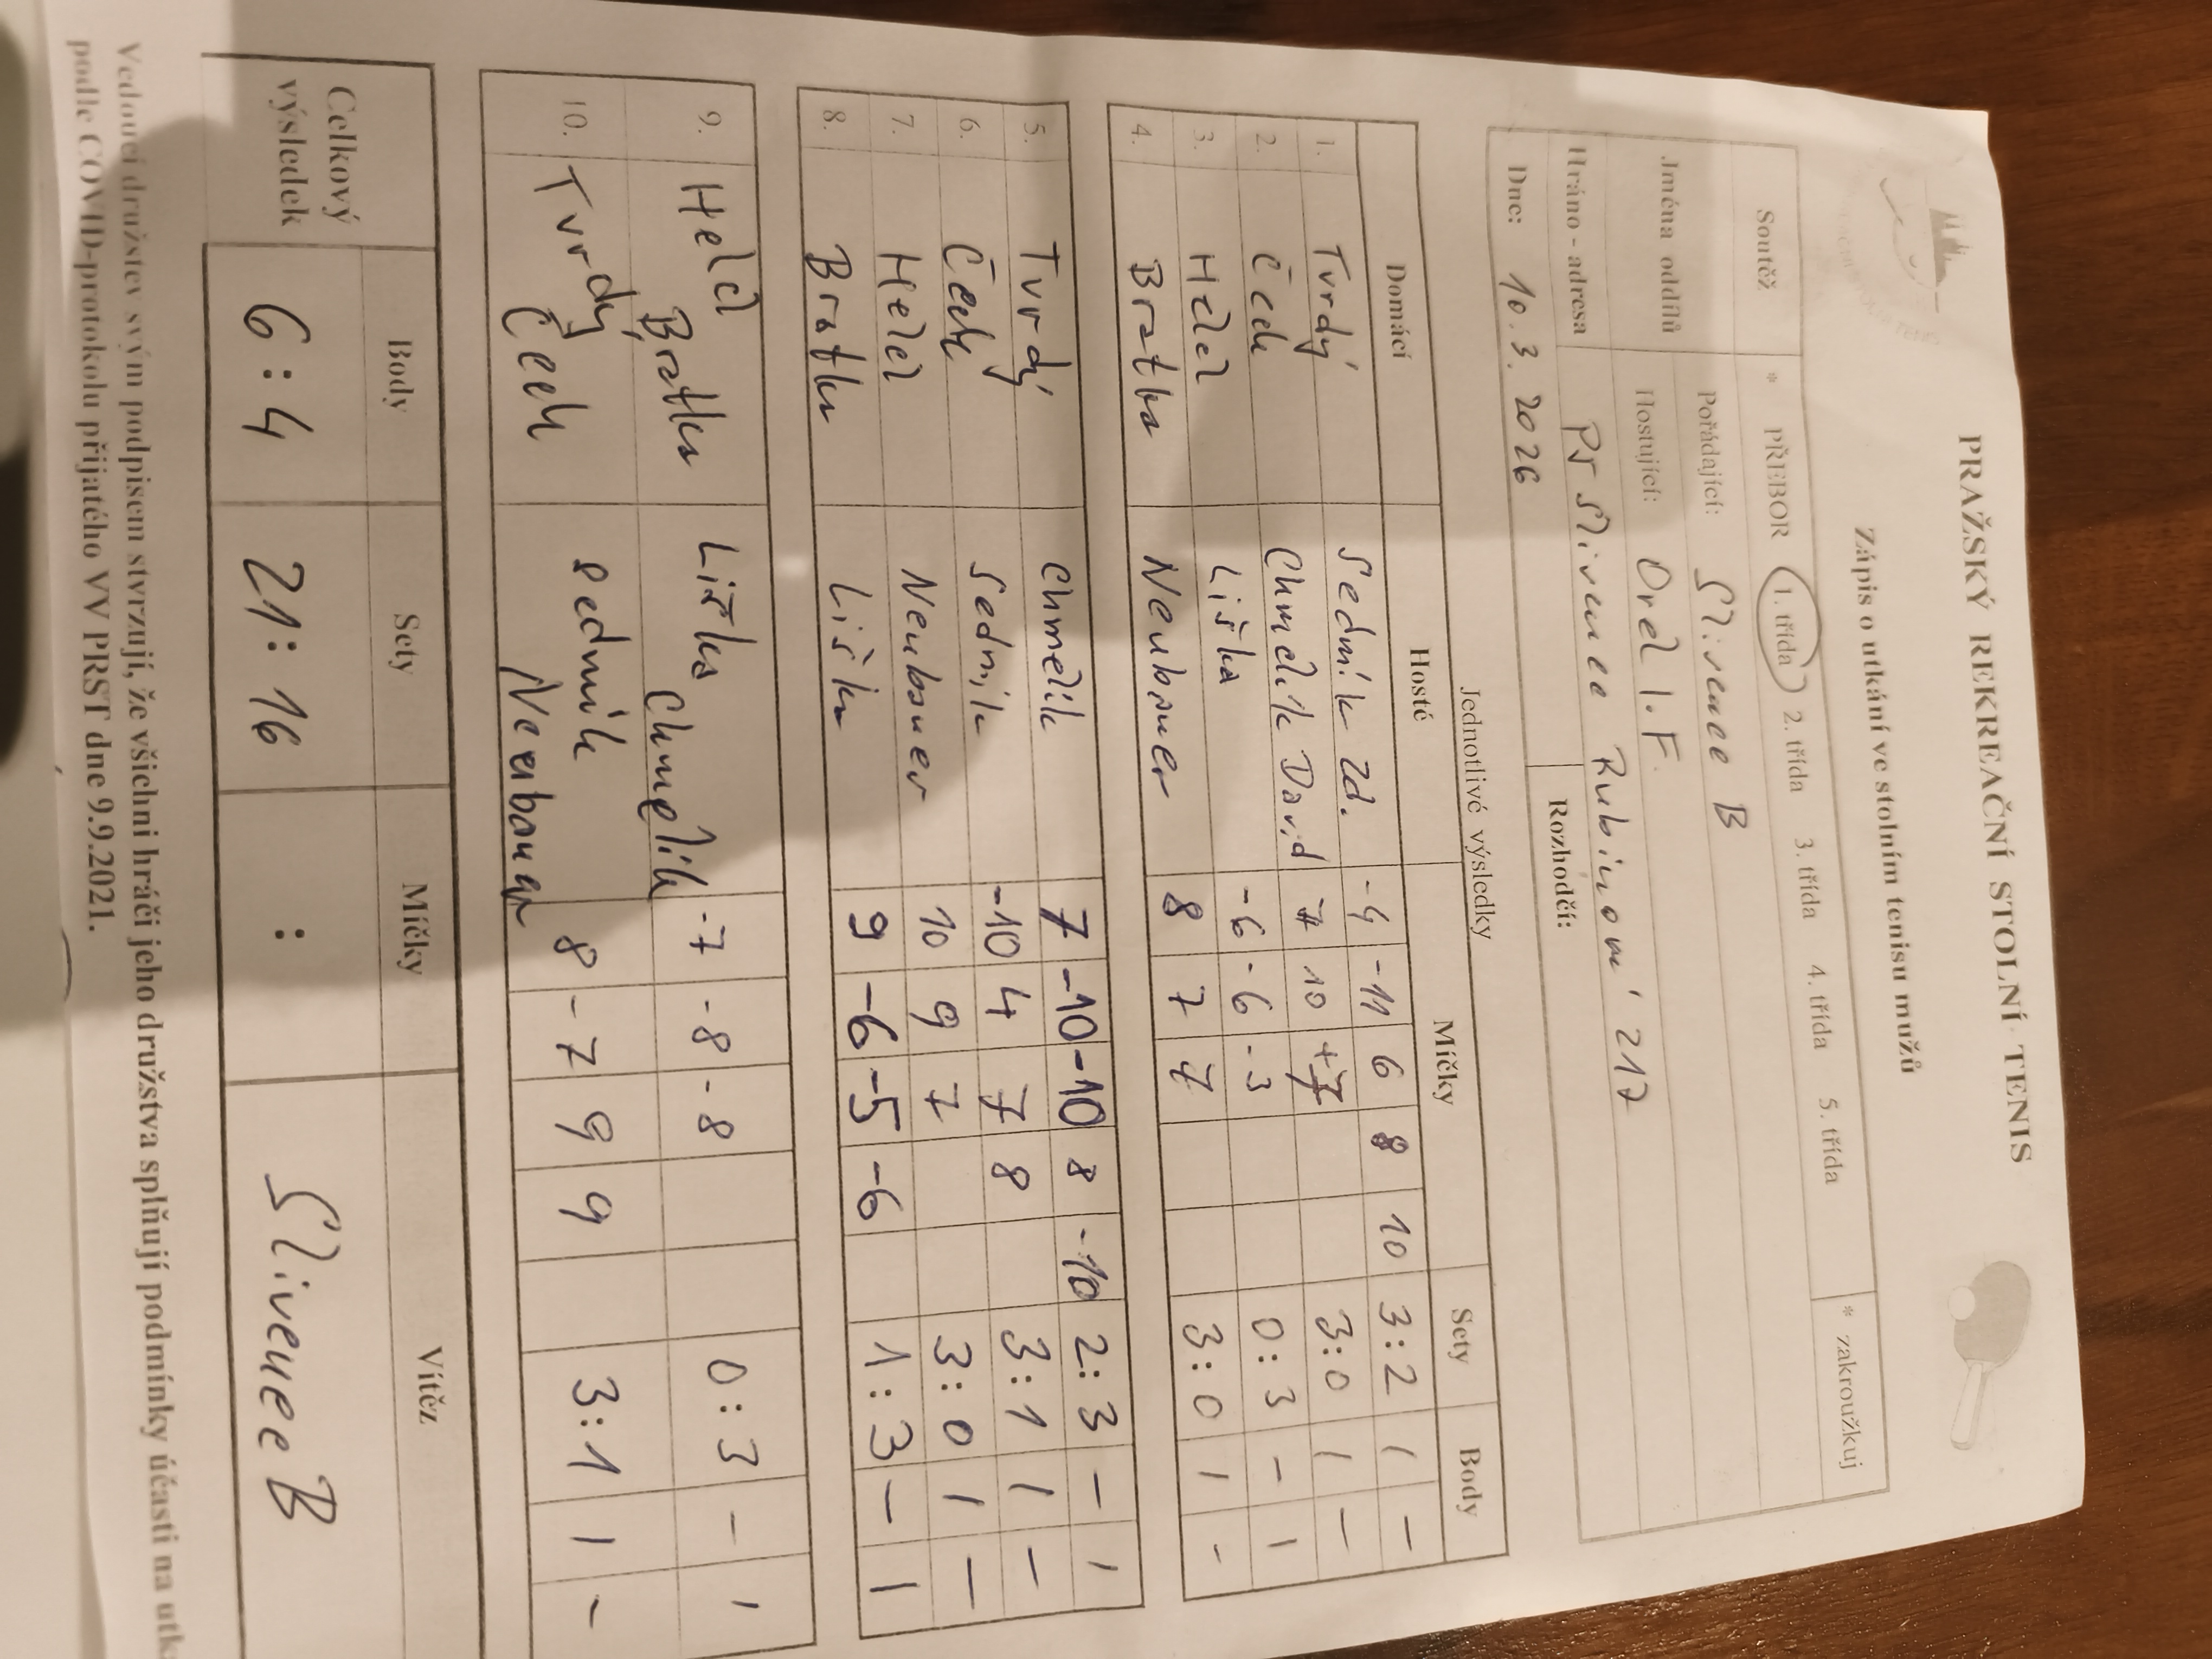 PRAŽSKÝ REKREAČNÍ STOLNÍ TENIS
Zápis o utkání ve stolním tenisu mužů
Soutěž * PŘEBOR 1. třída 2. třída 3. třída 4. třída 5. třída * zakroužkuj
Jména oddílů Pořádající: Slivenec B
Hostující: Orel 1. F
Hráno - adresa Slivenec Rubínová 217
Dne: 10. 3. 2026 Rozhodčí:
Jednotlivé výsledky
Domácí Hosté Míčky Sety Body
1. Tvrdý Sedník Zd. -4 -11 6 8 10 3:2 1 -
2. Čech Chmelík David 7 10 +7 3:0 1 -
3. Helel Liška -6 -6 -3 0:3 - 1
4. Bratka Neubauer 8 7 7 3:0 1 -
5. Tvrdý Chmelík 7 -10 -10 8 -10 2:3 - 1
6. Čech Sedník -10 4 7 8 3:1 1 -
7. Helel Neubauer 10 9 7 3:0 1 -
8. Bratka Liška 9 -6 -5 -6 1:3 - 1
9. Helel Bratka Liška Chmelík -7 -8 -8 0:3 - 1
10. Tvrdý Čech Sedník Neubauer 8 -7 9 9 3:1 1 -
Celkový výsledek Body Sety Míčky Vítěz
6:4 21:16 : Slivenec B
Vedoucí družstev svým podpisem stvrzují, že všichni hráči jeho družstva splňují podmínky účasti na
podle COVID-protokolu přijatého VV PRST dne 9.9.2021.